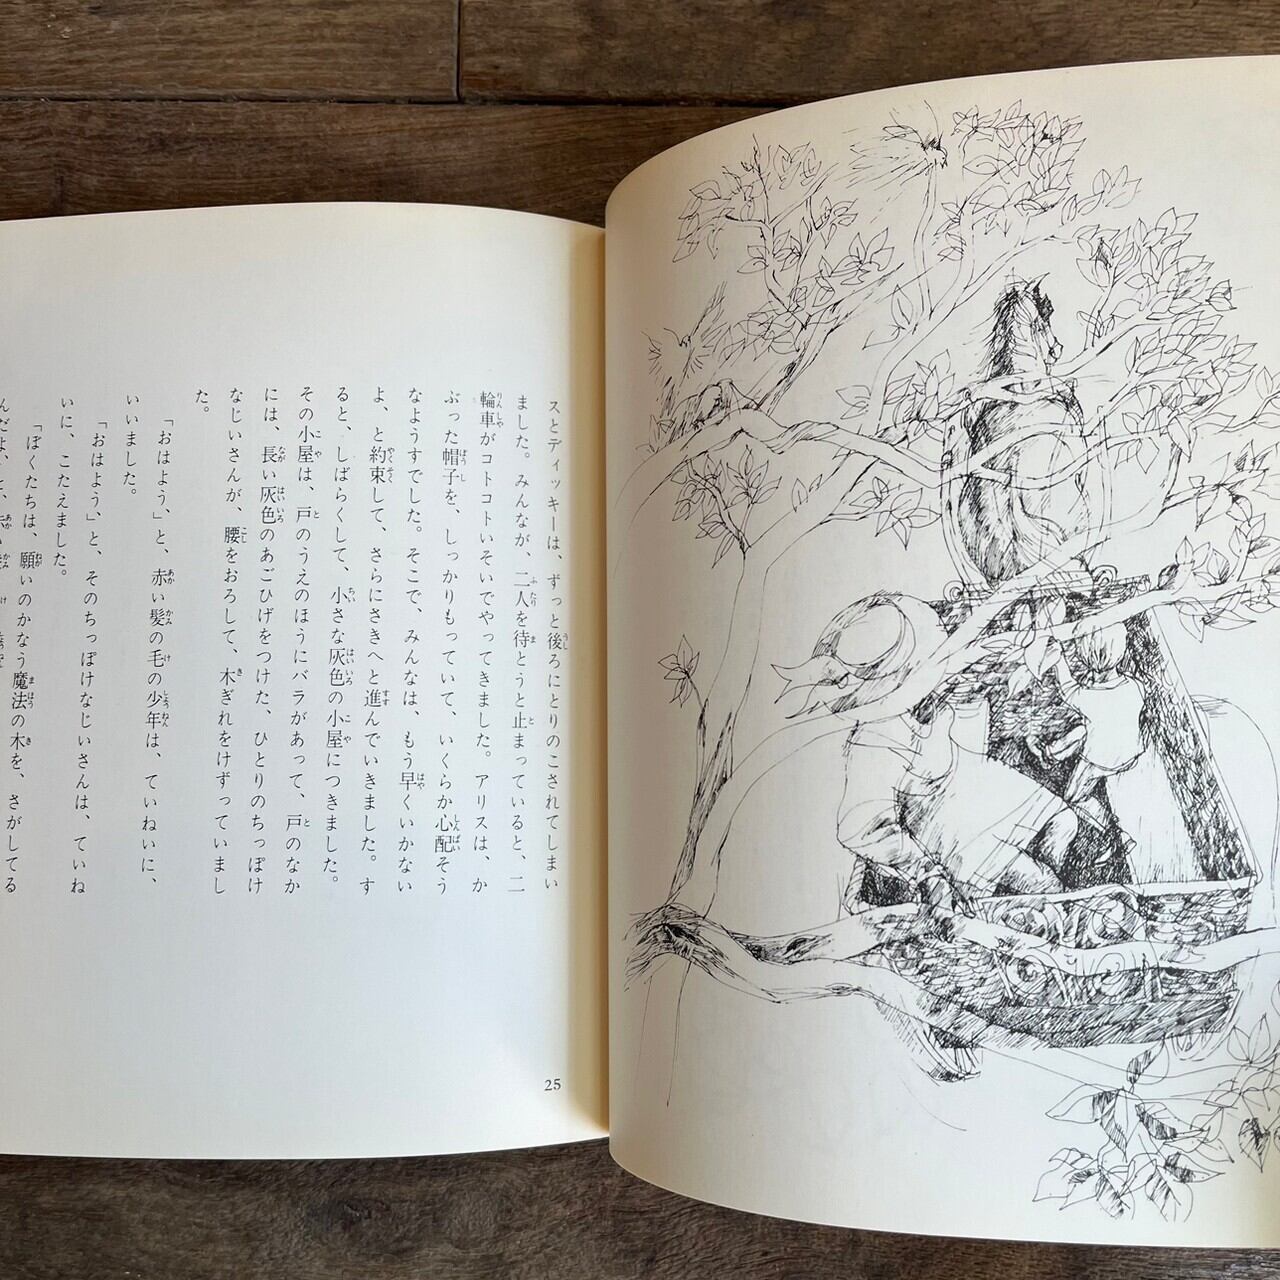 スとディッキーは、ずっと後ろにとりのこされてしまい
ました。みんなが、二人を待とうと止まっていると、二
輪車がコトコトいそいでやってきました。アリスは、か
ぶった帽子を、しっかりもっていて、いくらか心配そう
なようすでした。そこで、みんなは、もう早くいかない
よ、と約束して、さらにさきへと進んでいきました。す
ると、しばらくして、小さな灰色の小屋につきました。
その小屋は、戸のうえのほうにバラがあって、戸のなか
には、長い灰色のあごひげをつけた、ひとりのちっぽけ
なじいさんが、腰をおろして、木ぎれをけずっていまし
た。
「おはよう、」と、赤い髪の毛の少年は、ていねいに、
いいました。
「おはよう、」と、そのちっぽけなじいさんは、ていね
いに、こたえました。
「ぼくたちは、願いのかなう魔法の木を、さがしてる
んだよ、と、
25